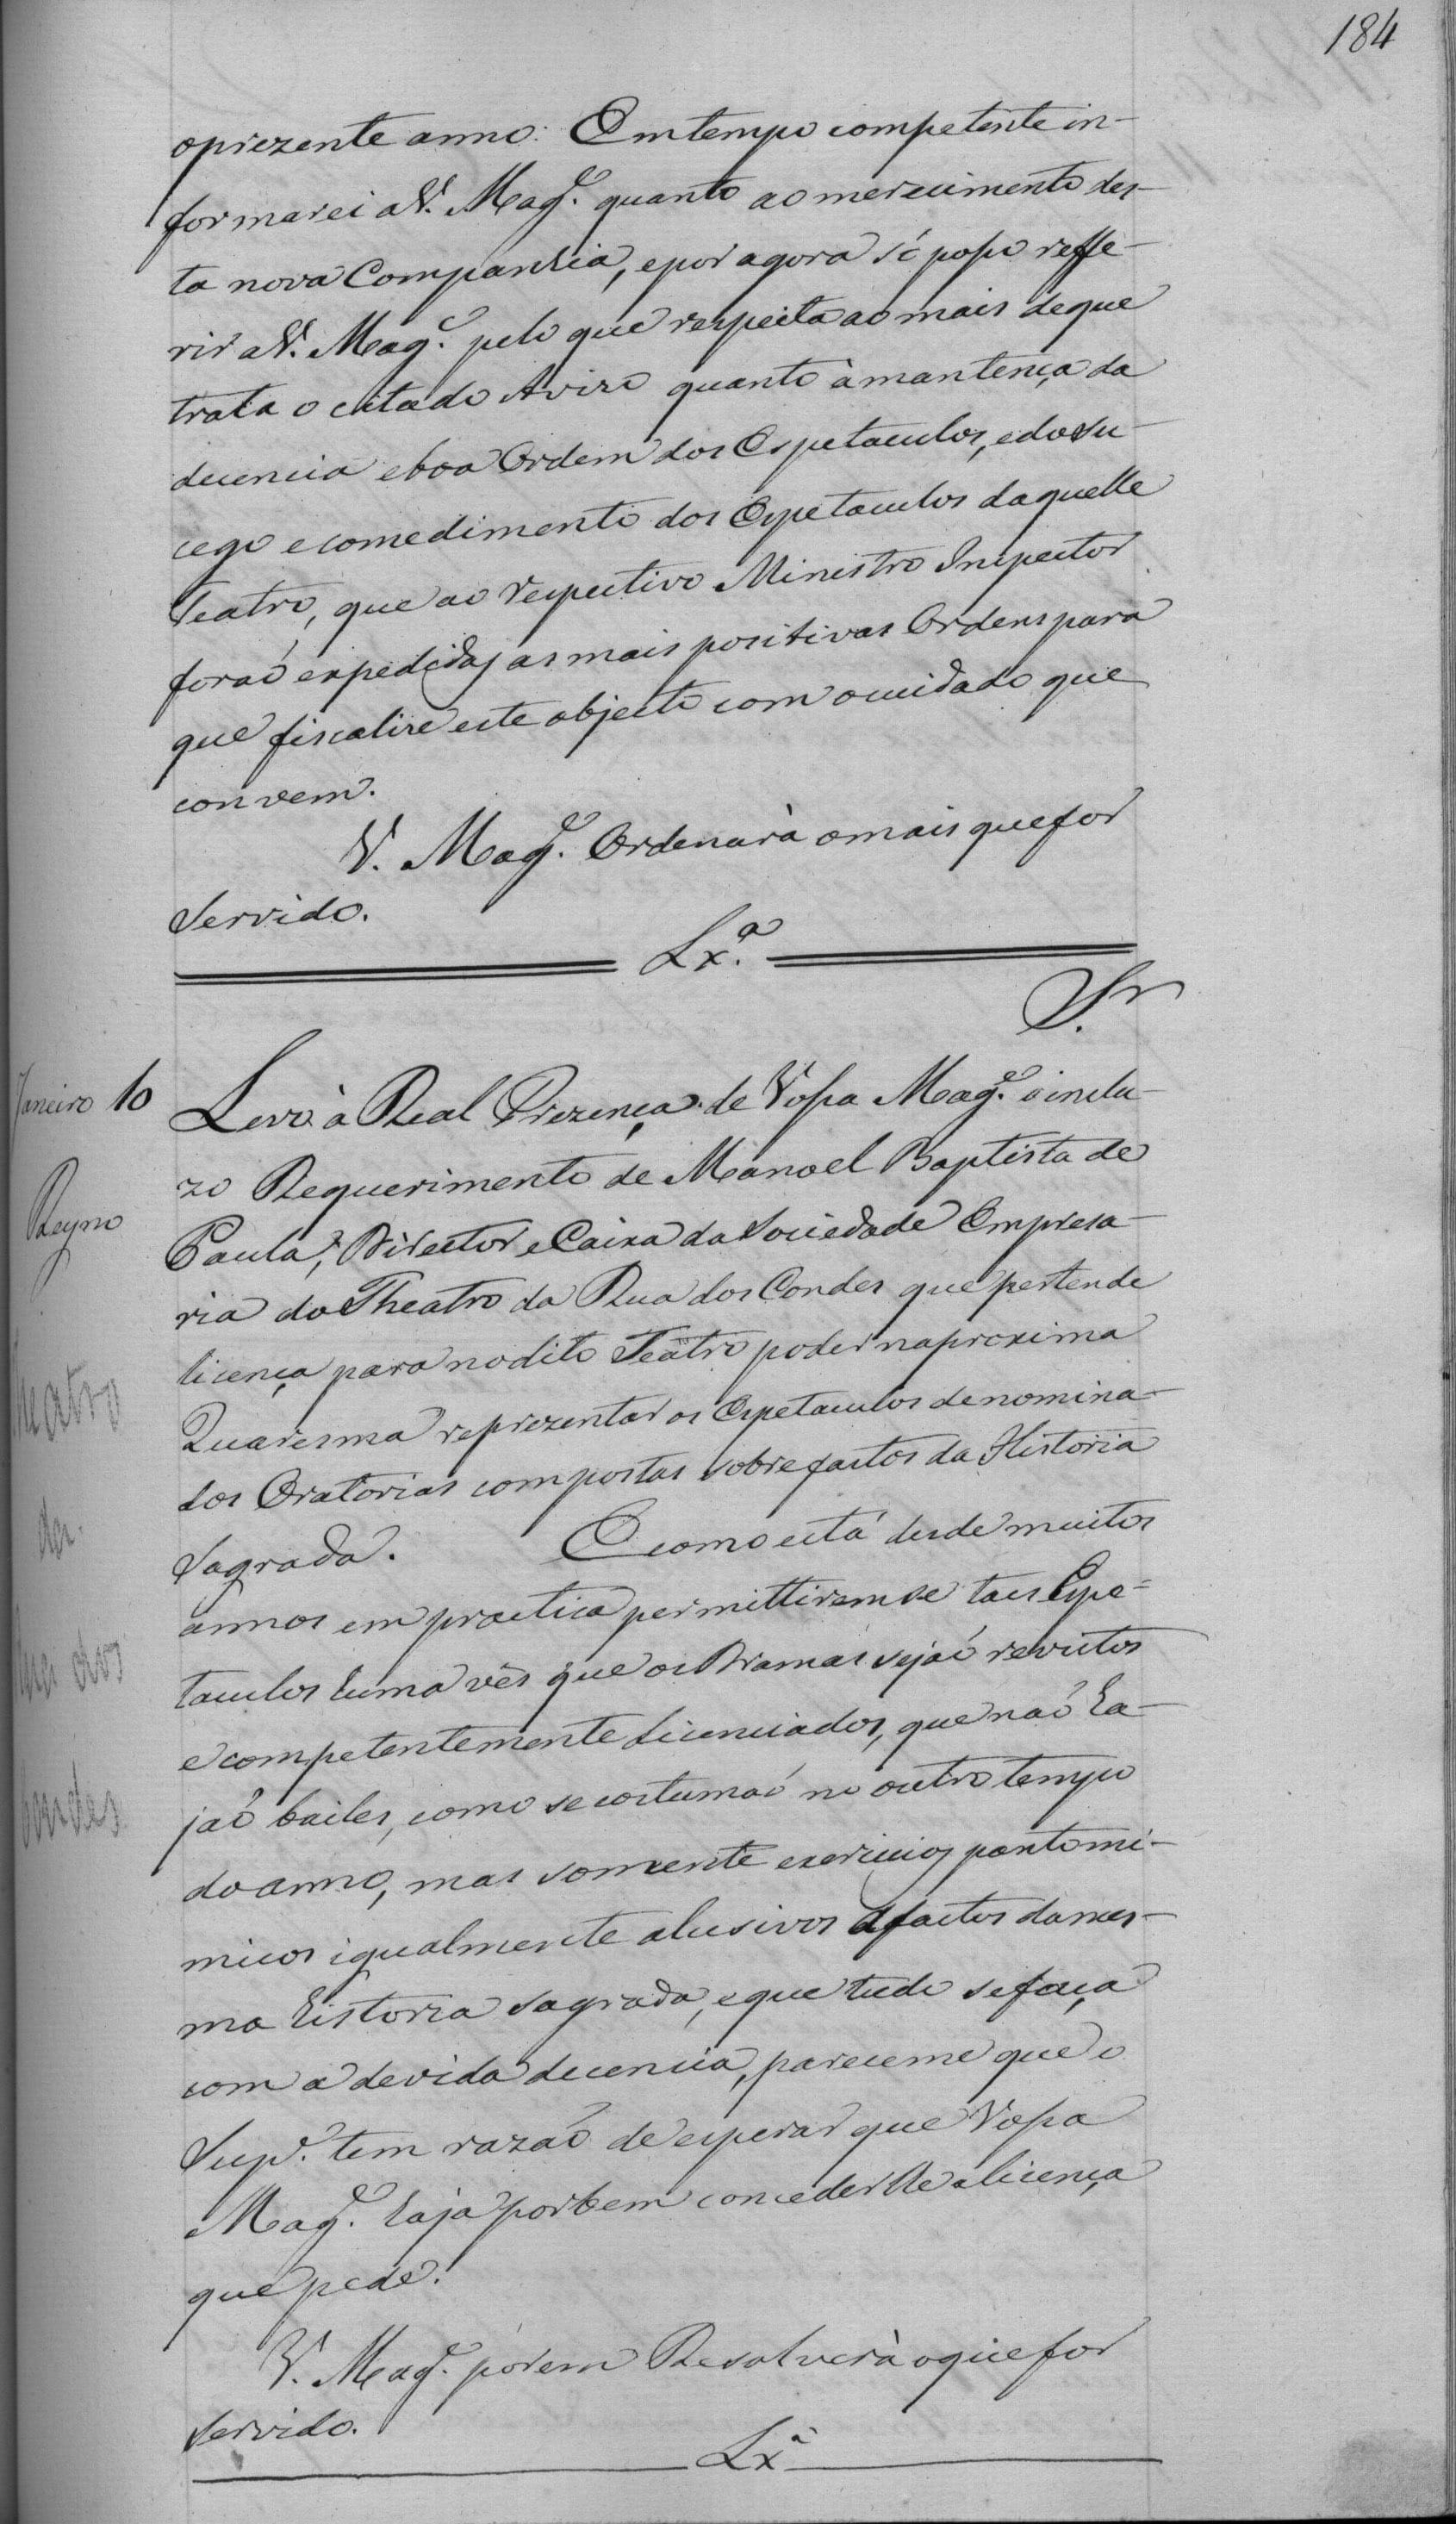 184
o prezente anno: Em tempo competente in-
formarei a V. Mag.e quanto ao merecimento des-
ta nova Companhia, e por agora só posso refle-
rir a V. Mag.e pelo que respeita ao mais de que
trata o citado Avizo quanto à mantença da
decencia e boa Ordem dos Espetaculos, e do su-
cego e comedimento dos Espetaculos daquelle
Teatro, que ao respectivo Ministro Inspector
foraõ expedidas as mais positivas Ordens para
que fiscalize este objecto com o cuidado que
convem.
V. Mag.e Ordenarà o mais que for
Servido.
Lx.a
Sr.
Janeiro 10
Levo à Real Prezença de Vossa Mag.e o inclu-
zo Requerimento de Manoel Baptista de
Reyno
Paula, Director e Caixa da Sociedade Empresa-
ria do Theatro da Rua dos Condes que pertende
licença para no dito Teatro poder na proxima
Theatro
Quaresma reprezentar os Espetaculos denomina-
dos Oratorias compostas sobre factos da Historia
da
Sagrada. E como está desde muitos
annos em practica permittirem se taes Espe-
Rua dos
taculos huma vês que os Dramas sejaõ revistos
e competentemente Licenciados, que naõ ha-
Condes
jaõ bailes, como se costumaõ no outro tempo
do anno, mas somente exercicios pantomi-
micos igualmente alusivos a factos da mes-
ma historia sagrada, e que tudo se faça
com a devida decencia, pareceme que o
Sup.e tem razaõ de esperar que Vossa
Mag.e haja por bem conceder lhe a licença
que pede.
V. Mag.e porem Resolverà o que for
Servido.
Lx.a